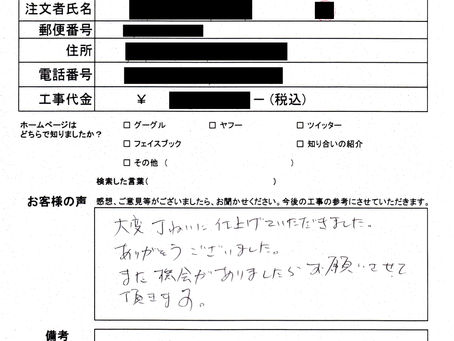 注文者氏名
郵便番号
住所
電話番号
工事代金 ¥ ー(税込)
ホームページは
どちらで知りましたか？
□ グーグル □ ヤフー □ ツイッター
□ フェイスブック □ 知り合いの紹介
□ その他 ( )
検索した言葉( )
お客様の声 感想、ご意見等がございましたら、お聞かせください。今後の工事の参考にさせていただきます。
大変丁ねいに仕上げていただきました。
ありがとうございました。
また機会がありましたらお願いさせて
頂きます。
備考